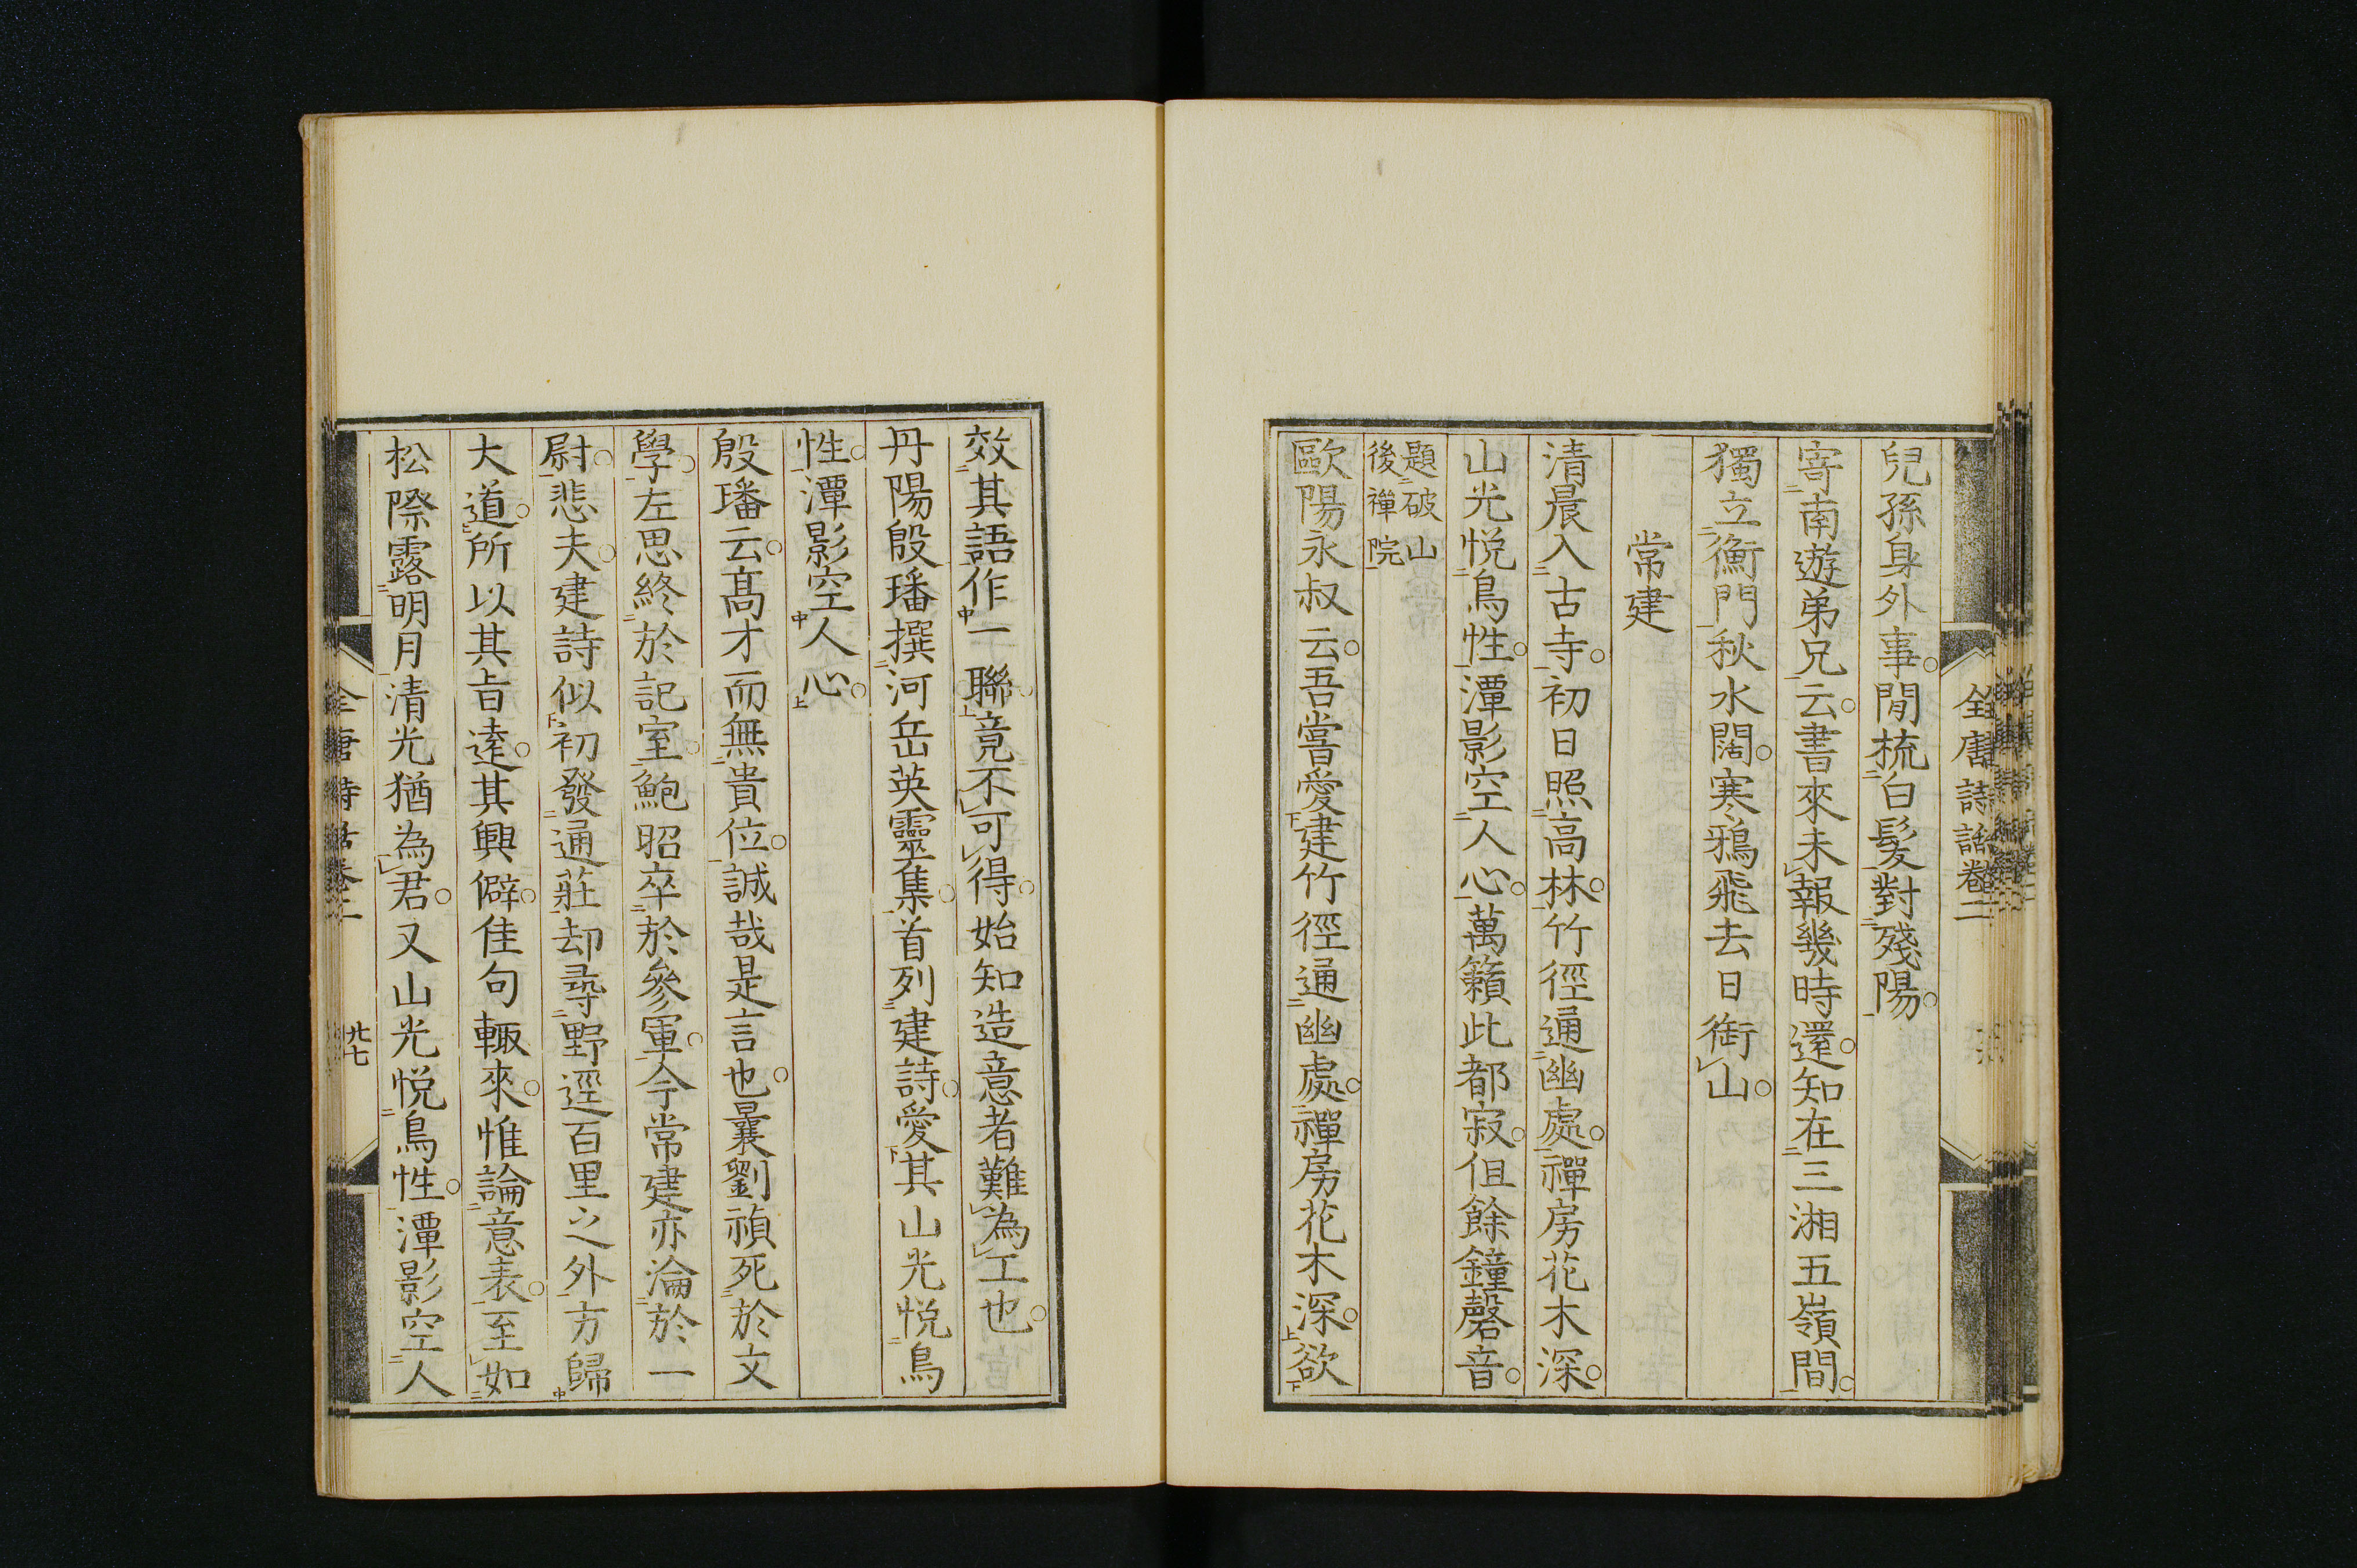 全唐詩話卷二
兒孫身外事閒梳白髮對殘陽
寄南遊弟兄云書來未報幾時還知在三湘五嶺間
獨立衡門秋水闊寒鴉飛去日銜山
常建
清晨入古寺初日照高林竹徑通幽處禪房花木深
山光悅鳥性潭影空人心萬籟此都寂但餘鐘磬音
題破山
後禪院
歐陽永叔云吾嘗愛建竹徑通幽處禪房花木深欲
效其語作一聯竟不可得始知造意者難為工也
丹陽殷璠撰河岳英靈集首列建詩愛其山光悅鳥
性潭影空人心
殷璠云高才而無貴位誠哉是言也曩劉禎死於文
學左思終於記室鮑昭卒於參軍今常建亦淪於一
尉悲夫建詩似初發通莊却尋野逕百里之外方歸
大道所以其旨遠其興僻佳句輒來惟論意表至如
松際露明月清光猶為君又山光悅鳥性潭影空人
全唐詩話卷二